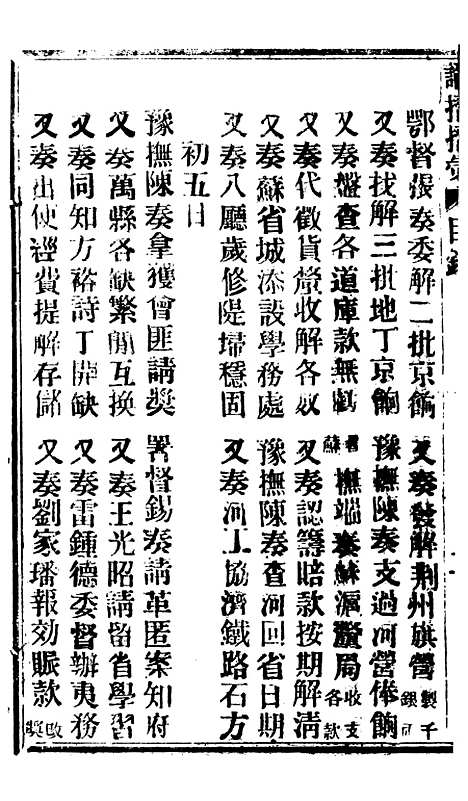 目錄
鄂督張奏委解二批京餉　又奏發解荊州旗營
又奏找解三批地丁京餉　豫撫陳奏支過河營俸餉
又奏盤查各道庫款無虧　署蘇撫端奏蘇滬釐局收支各款
又奏代徵貨釐收解各數　又奏認籌賠款按期解清
又奏蘇省城添設學務處　豫撫陳奏查河回省日期
又奏八廳歲修隄埽穩固　又奏河工協濟鐵路石方
初五日
豫撫陳奏拿獲會匪請獎　署督錫奏請革匿案知府
又奏萬縣各缺繁簡互換　又奏王光昭請留省學習
又奏同知方裕詩丁開缺　又奏雷鍾德委督辦夷務
又奏出使經費提解存儲　又奏劉家璠報効賑款